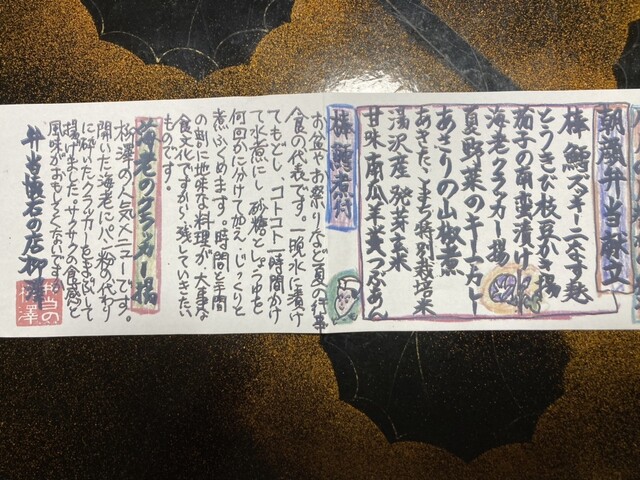 朝顔弁当献立
棒鱈 ズッキーニ なす麩
とうきび枝豆かき揚
茄子の南蛮漬け
海老クラッカー揚
夏野菜のキーマカレー
あさりの山椒煮
あきたこまち特別栽培米
湯沢産 発芽玄米
甘味 南瓜羊羹 つぶあん
棒鱈甘煮
お盆やお祭りなど夏の行事
食の代表です。一晩水に漬け
てもどし、コトコト一時間かけ
て水煮にし 砂糖としょうゆを
何回かに分けて加え、じっくりと
煮ふくめます。時間と手間
の割に地味な料理が、大事な
食文化ですから残していきたい
ものです。
海老のクラッカー揚
柳澤の人気メニューです。
開いた海老にパン粉の代わり
に砕いたクラッカーをまぶして
揚げました。サクサクの食感と
風味がおもしろくないです
弁当懐石の店 柳澤
弁当の
柳澤